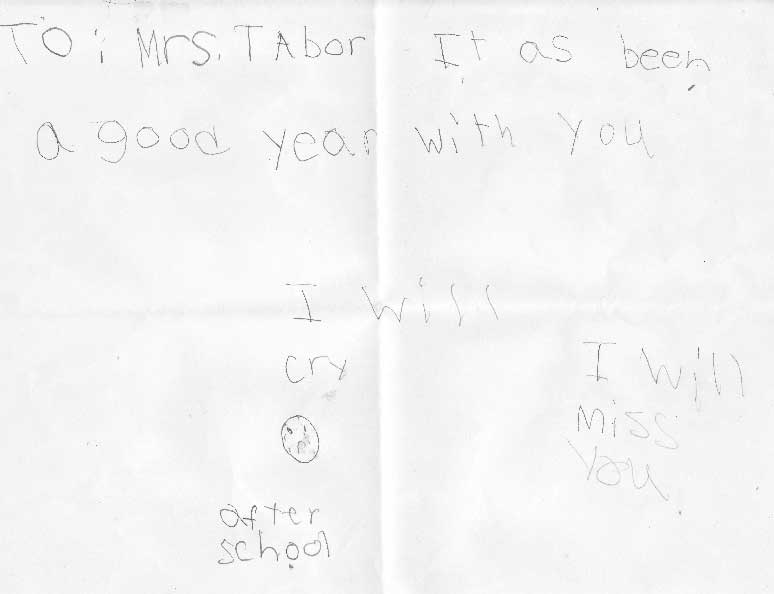 TO: Mrs. TAbor It as been.
a good year with you
I will
cry
after
school
I will
Miss
You.